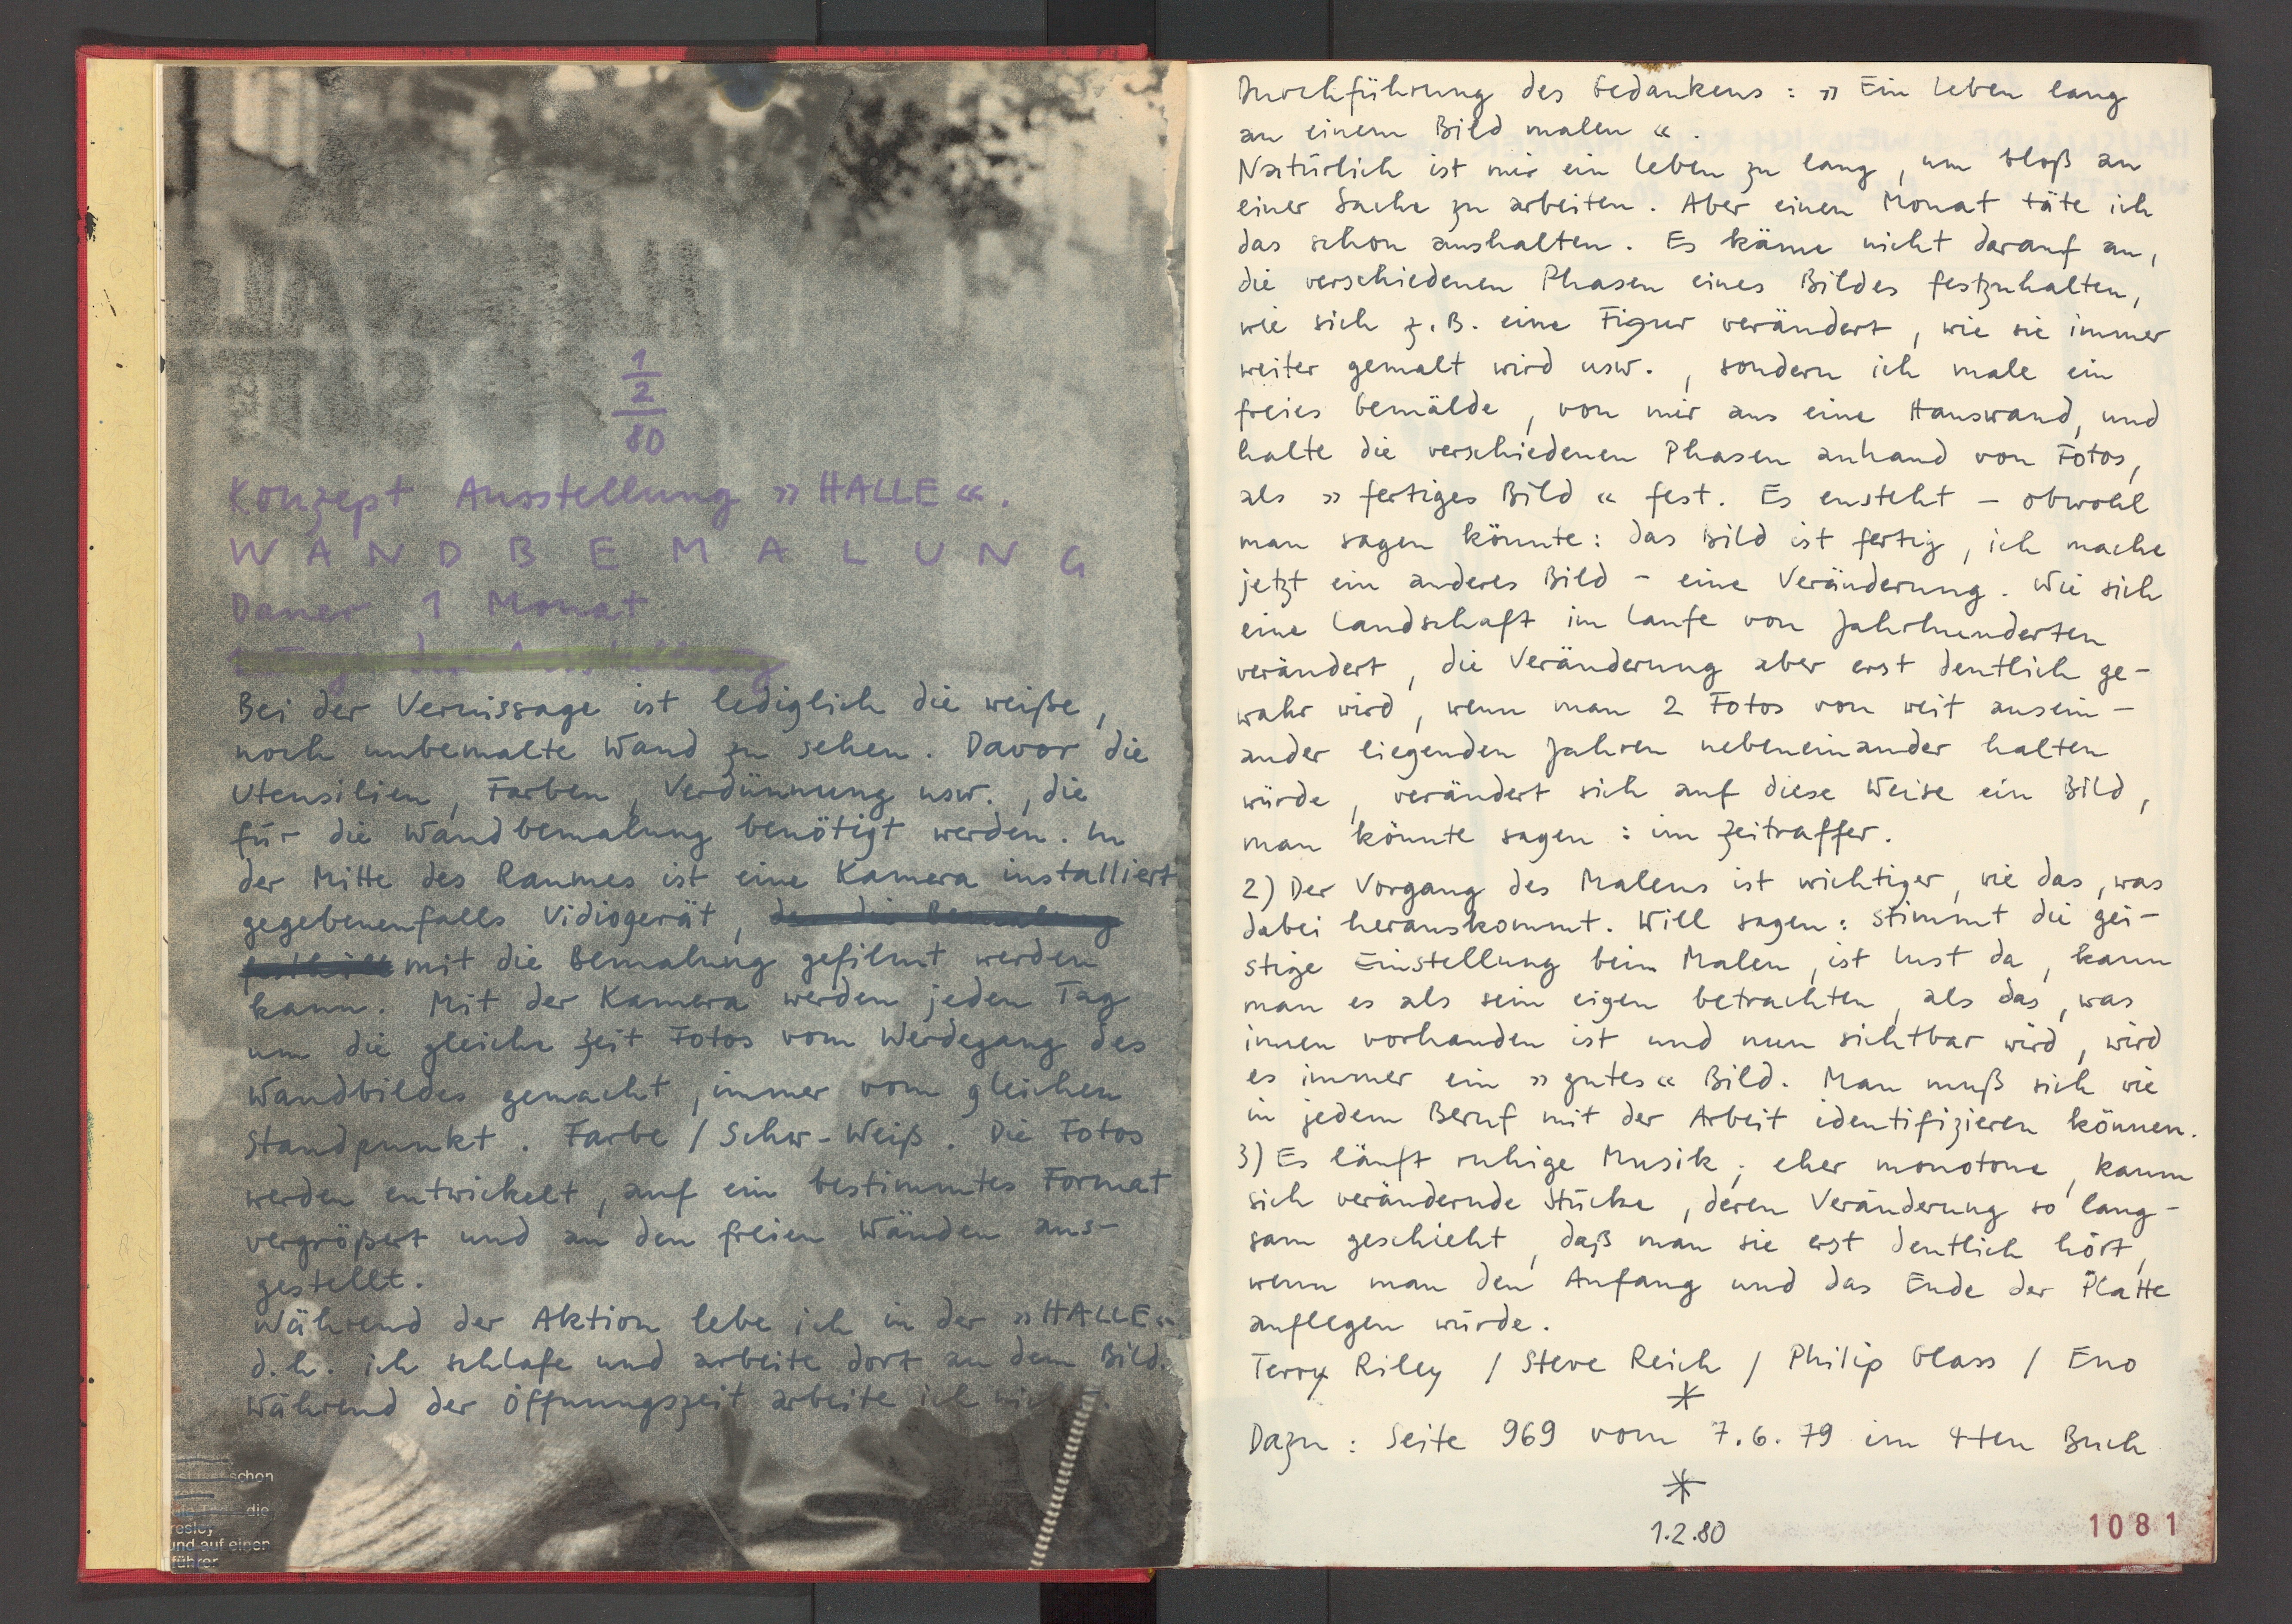 1
2
80
Konzept Ausstellung »HALLE«.
WANDBEMALUNG
Dauer 1 Monat
Bei der Vernissage ist lediglich die weiße,
noch unbemalte Wand zu sehen. Davor die
Utensilien, Farben, Verdünnung usw., die
für die Wandbemalung benötigt werden. In
der Mitte des Raumes ist eine Kamera installiert
gegebenenfalls Vidiogerät, die Bemalung
festhält mit die Bemalung gefilmt werden
kann. Mit der Kamera werden jeden Tag
um die gleiche Zeit Fotos vom Werdegang des
Wandbildes gemacht, immer vom gleichen
Standpunkt. Farbe / Schw-Weiß. Die Fotos
werden entwickelt, auf ein bestimmtes Format
vergrößert und an den freien Wänden aus-
gestellt.
Während der Aktion lebe ich in der »HALLE«
d.h. ich schlafe und arbeite dort an dem Bild.
Während der Öffnungszeit arbeite ich nicht.
schon
die
esley
und auf einen
führer
Durchführung des Gedankens: »Ein Leben lang
an einem Bild malen«.
Natürlich ist mir ein Leben zu lang, um bloß an
einer Sache zu arbeiten. Aber einen Monat täte ich
das schon aushalten. Es käme nicht darauf an,
die verschiedenen Phasen eines Bildes festzuhalten,
wie sich z.B. eine Figur verändert, wie sie immer
weiter gemalt wird usw., sondern ich male ein
freies Gemälde, von mir aus eine Hauswand, und
halte die verschiedenen Phasen anhand von Fotos,
als »fertiges Bild« fest. Es ensteht – obwohl
man sagen könnte: das Bild ist fertig, ich mache
jetzt ein anderes Bild – eine Veränderung. Wie sich
eine Landschaft im Laufe von Jahrhunderten
verändert, die Veränderung aber erst deutlich ge-
wahr wird, wenn man 2 Fotos von weit ausein-
ander liegenden Jahren nebeneinander halten
würde, verändert sich auf diese Weise ein Bild,
man könnte sagen: im Zeitraffer.
2) Der Vorgang des Malens ist wichtiger, wie das, was
dabei herauskommt. Will sagen: stimmt die gei-
stige Einstellung beim Malen, ist Lust da, kann
man es als sein eigen betrachten, als das, was
innen vorhanden ist und nun sichtbar wird, wird
es immer ein »gutes« Bild. Man muß sich wie
in jedem Beruf mit der Arbeit identifizieren können.
3) Es läuft ruhige Musik; eher monotone, kaum
sich verändernde Stücke, deren Veränderung so lang-
sam geschieht, daß man sie erst deutlich hört,
wenn man den Anfang und das Ende der Platte
auflegen würde.
Terry Riley / Steve Reich / Philip Glass / Eno
*
Dazu: Seite 969 vom 7.6.79 im 4ten Buch
*
1.2.80
1081